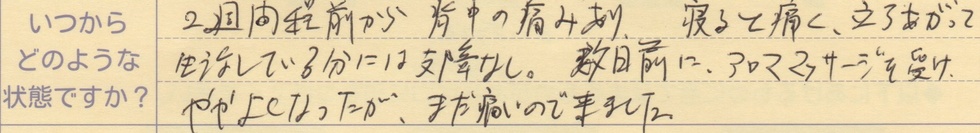 いつから
どのような
状態ですか？
2週間程前から 背中の痛みあり、寝ると痛く、立ちあがって
生活している分には支障なし。数日前に、アロママッサージを受け、
ややよくなったが、まだ痛いので来ました。